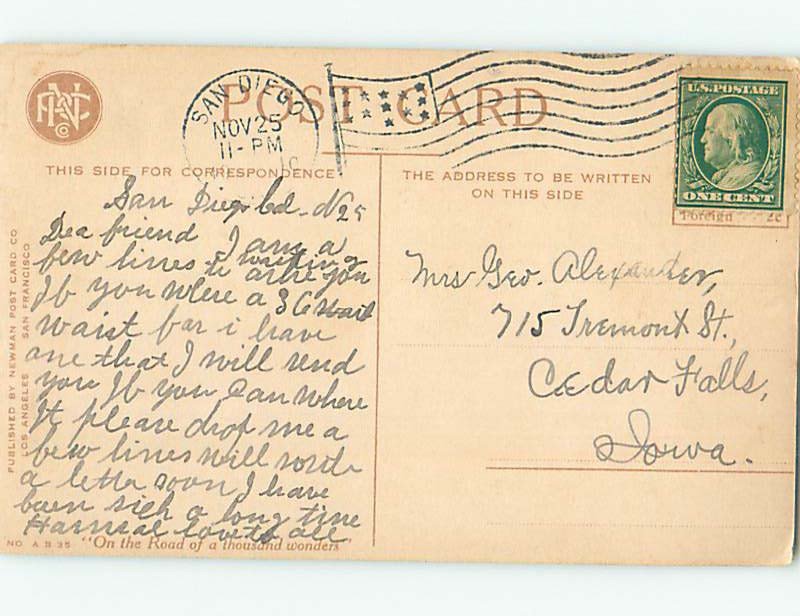 SAN DIEGO
NOV 25
11-PM
POST CARD
U.S. POSTAGE
ONE CENT
Foreign 2c
THIS SIDE FOR CORRESPONDENCE
THE ADDRESS TO BE WRITTEN
ON THIS SIDE
San Diego Cal. N 25
Dea friend I am a
few lines writing
to aske you
If you Where a 36
waist for i have
one that I will send
you If you Can Where
It please drop me a
few lines will
a letter soon I have
been sick a long time
love to all
Mrs Geo. Alexander,
715 Tremont St.,
Cedar Falls,
Iowa.
PUBLISHED BY NEWMAN POST CARD CO
LOS ANGELES SAN FRANCISCO
NO. A B 35 "On the Road of a thousand wonders"